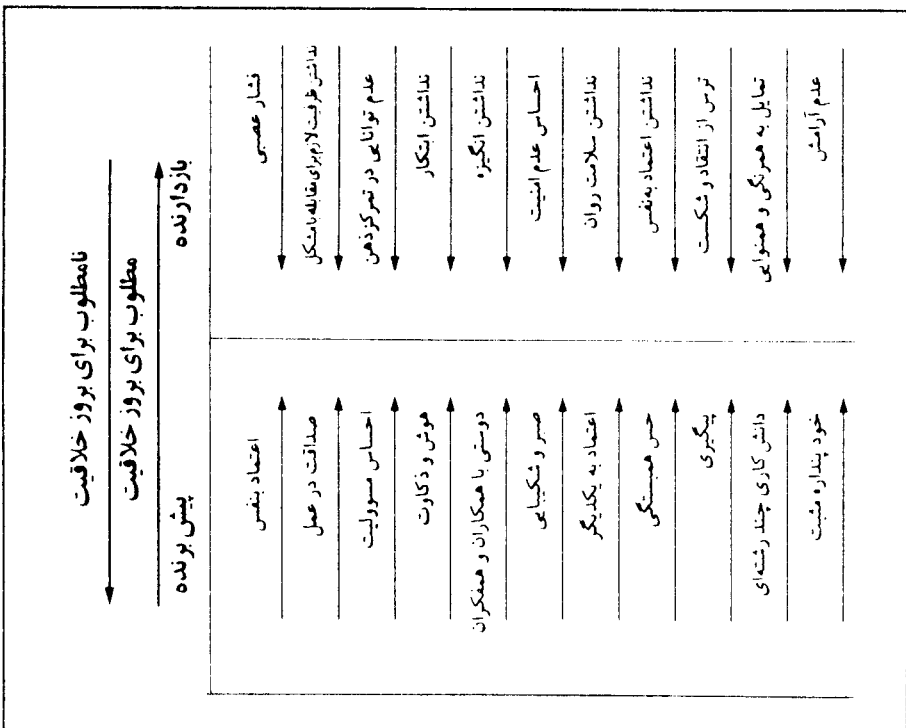 نامطلوب برای بروز خلاقیت
مطلوب برای بروز خلاقیت
بازدارنده
پیش برنده
فشار عصبی
نداشتن ظرفیت لازم برای مقابله با مشکل
عدم توانایی در تمرکز ذهن
نداشتن ابتکار
نداشتن انگیزه
احساس عدم امنیت
نداشتن سلامت روان
نداشتن اعتماد به نفس
ترس از انتقاد و شکست
تمایل به همرنگی و همنوایی
عدم آرامش
اعتماد بنفس
صداقت در عمل
احساس مسوولیت
هوش و ذکاوت
دوستی با همکاران و همفکران
صبر و شکیبایی
اعتماد به یکدیگر
حس همبستگی
پیگیری
دانش کاری چند رشته‌ای
خود پنداره مثبت